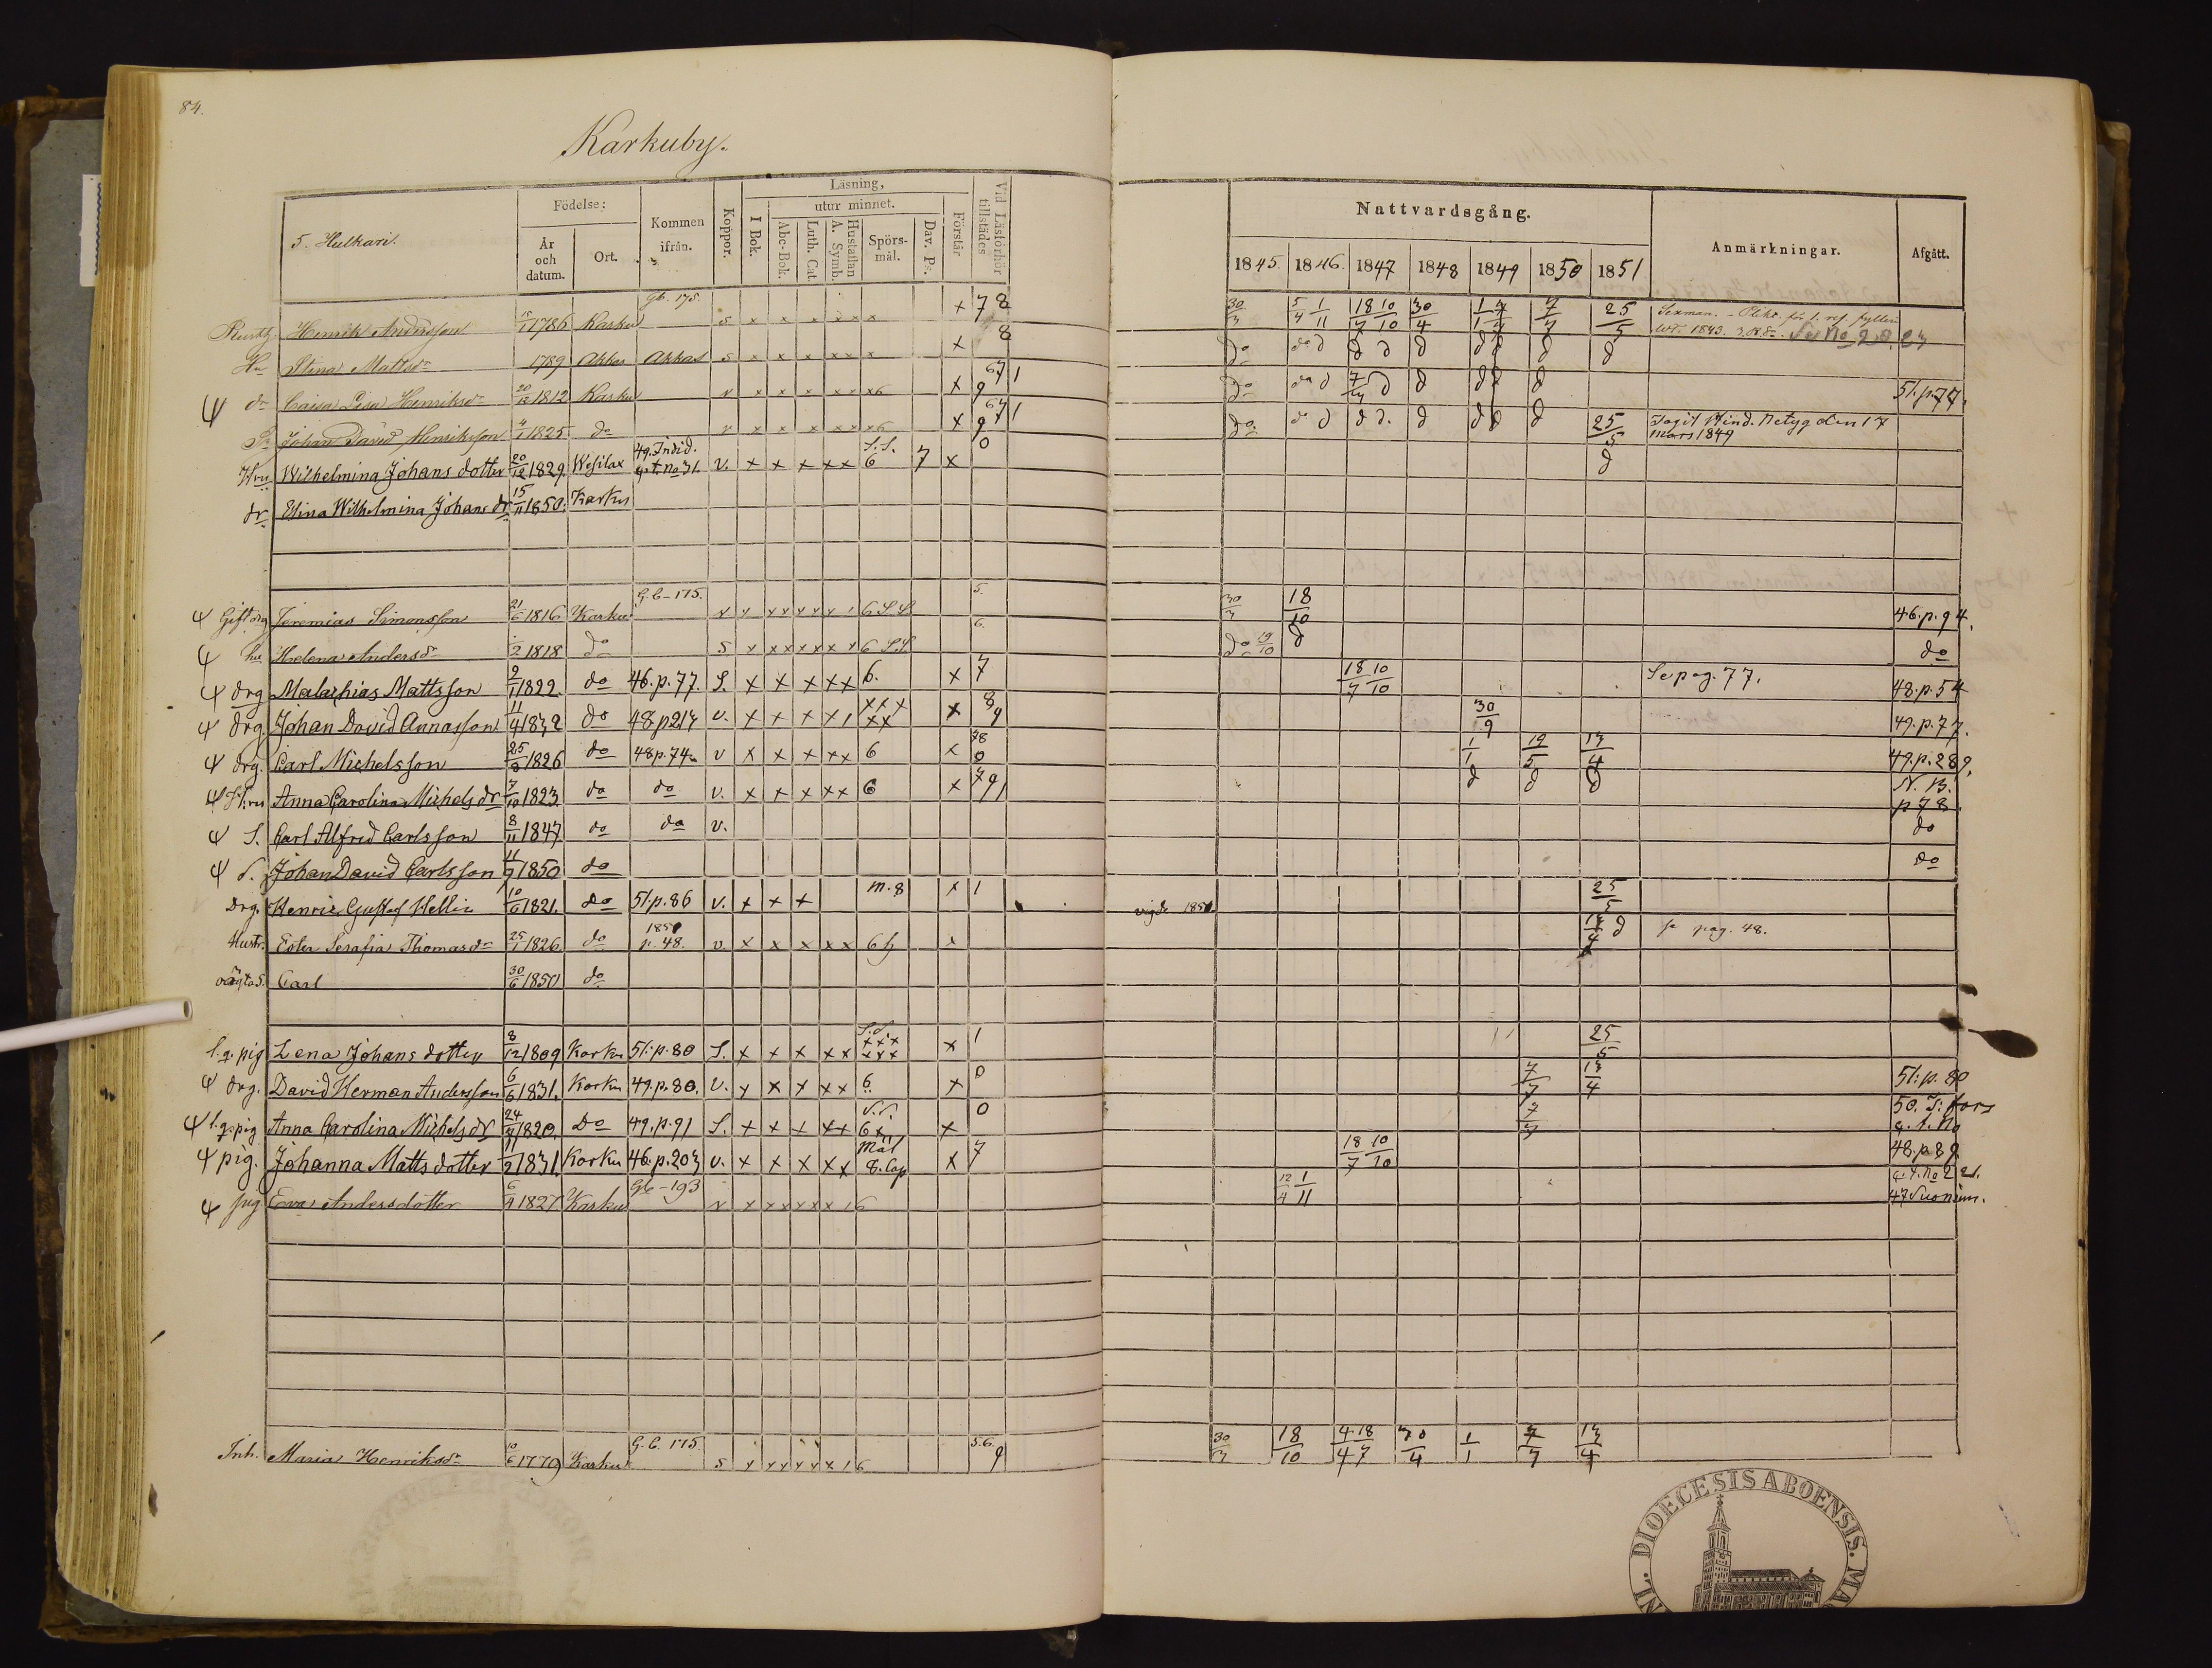 84.
Karkuby.
5. Hulkari.
Födelse:
År och datum.
Ort.
Kommen ifrån.
Koppor.
Läsning,
utur minnet.
I Bok.
Abc-Bok.
Luth. Cat.
Hustaflan A. Symb.
Spörs-mål.
Dav. Ps.
Förstår
Vid Läsförhör tillstädes
Nattvardsgång.
1845. 1846. 1847 1848 1849 1850 1851
Anmärkningar.
Afgått.
Gb. 175.
Henrik Andersson 15/1 1786 Karku s x x x x x x x 7 8 30/3 5/4 1/11 18/7 10/10 30/4 7/7 25/5
1843.
Hu Stina Mattsdr 1789 Akkas Akkas s x x x x x x x 8 do do d d d d d d d d
dr Caisa Lisa Henriksdr 20/12 1812 Karku v x x x x x x 6 x 9 do do d d d d d 51.p.77.
Johan David Henriksson 4/1 1825 do v x x x x x x 6 x 9 do d d d d. d d d d 25/5 den 17
mars 1849
49. Indid.
Hru Wilhelmina Johans dotter 20/12 1829. Wesilax No 31. v. x x x x x 6 7 x 0 d
dr Elina Wilhelmina Johans dr 15/11 1850. Karku
G.b-175.
Gift drg Jeremias Simonsson 21/6 1816 Karku v x x x x x x 1 6 S.S. 5. 30/3 18/10 46.p.94.
hu Helena Andersdr 2 1818 do s x x x x x x x 6 S.S. 6. do 19/10 d do
drg Malachias Mattsson 2/1 1822. do 46.p.77. S. x x x x x 6. x 7 18/7 10/10 Se pag. 77. 48.p.54
drg. Johan David Annasson 11/4 1832 do 48 p 213 v. x x x x 1 x x x x x x 8 9 30/9 49.p.77.
drg. Carl Michelsson 25/8 1826 do 48p.74. v x x x x x 6 x 0 1/1 19/5 13/4 49.p.289.
H:ru Anna Carolina Michels dr 7/10 1823 do do v. x x x x x 6 x 7 9 1 d d d N. B.
p 78.
S. Carl Alfred Carlsson 8/11 1847 do do v. do
S. Johan David Carlsson 1850 do do
Drg. Henric Gustaf Hellin 10/6 1821. do 51.p.86 v. x x x m.8 x 1 25/5
vigde 1851.
Hustr. Ester Serafia Thomasdr 25/1 1826. do 1851 p. 48. v. x x x x x 6 x 13/4 d se pag. 48.
oägta S. Carl 30/6 1850 do
l.q.pig Lena Johans dotter 8/12 1809 Karku 51.p.80 S. x x x x x S.S. x x x x x x x 1 25/5
drg. David Herman Andersson 6/6 1831. Karku 49.p.80. v. x x x x x 6. x 0 7/7 13/4 51:p.80
l.q.pig Anna Carolina Michels dr 24 1820. Do 49.p.91 S. x x x x x 6 x x 0 7/7 50. T: fors
pig. Johanna Matts dotter 11/2 1831. Karku 46.p.203 v. x x x x x Mål 8. Cap x 7 18/7 10/10 48.p 89
Gb-193
pig Eva Andersdotter 6/4 1827 Karku v x x x x x x 1 6 12/4 1/11 47 Suonium.
G.b. 175.
Inh. Maria Henriksdr 10/6 1779 Karku s x x x x x x 1 6 5.6. 9 30/3 18/10 4/4 18/7 30/4 1/1 7/7 13/4
DIOECESIS ABOENSIS.